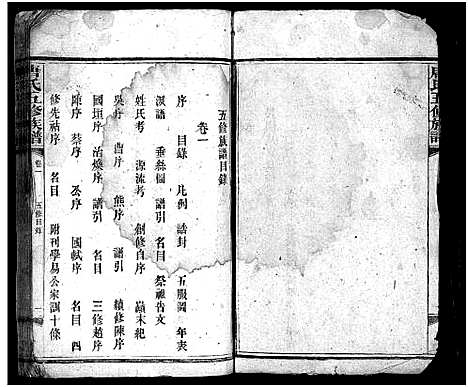 唐氏五修族譜
五修族譜目錄
卷一
序 目錄 凡例 誥封 五服圖 年表
派語 垂絲圖 譜引 名目 祭祖告文
姓氏考 源流考 創修自序 巔末紀
吳序 曹序 熊序 譜引 續修陳序
國垣序 治煥序 譜引 名目 三修趙序
陳序 蔡序 公序 國軾序 名目 四
修先祜序 名目 附刊學易公家訓十條
唐氏五修族譜
卷一
五修目錄
一